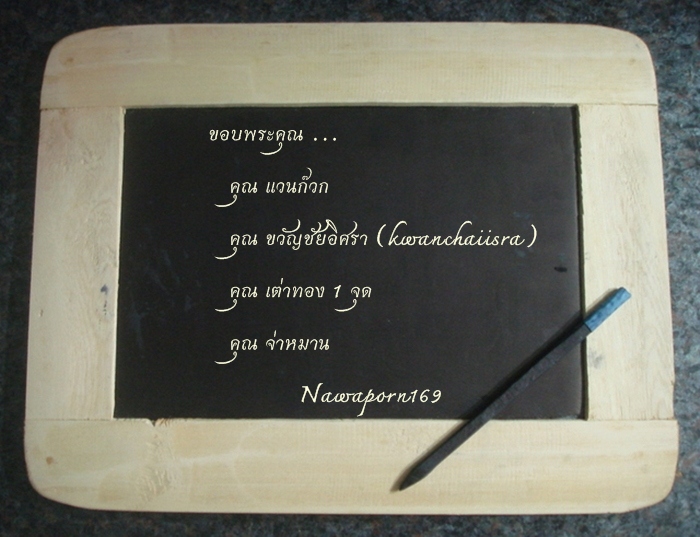 ขอบพระคุณ ...
คุณ แวนก๊วก
คุณ ขวัญชัยอิศรา (kwanchaiisra)
คุณ เต่าทอง 1 จุด
คุณ จ่าหมาน
Nawaporn169